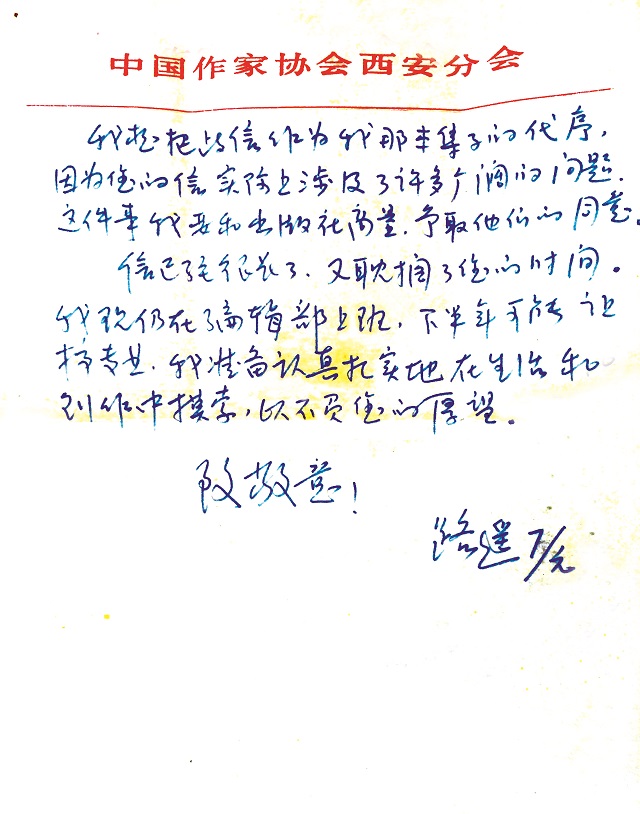 中国作家协会西安分会
我想把此信作为我那本集子的代序,
因为您的信实际上涉及了许多个间的问题.
这件事我要和出版社商量.争取他们的同意.
信已经很长了、又耽搁了您的时间。
我现仍在编辑部上班,下半年可能让
搞专业.我准备认真扎实地在生活和
创作中摸索,以不负您的厚望。
致敬意!
路遥